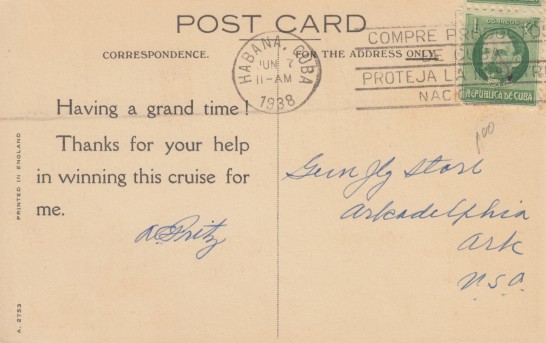 POST CARD
CORRESPONDENCE.
FOR THE ADDRESS ONLY.
HABANA, CUBA
JUN 7
11-AM
1938
COMPRE
DE
PROTEJA LA
NAC
CORREOS
REPUBLICA DE CUBA
Having a grand time!
Thanks for your help
in winning this cruise for
me.
Fritz
1.00
Store
Arkadelphia
Ark
U.S.A.
PRINTED IN ENGLAND
A. 2753